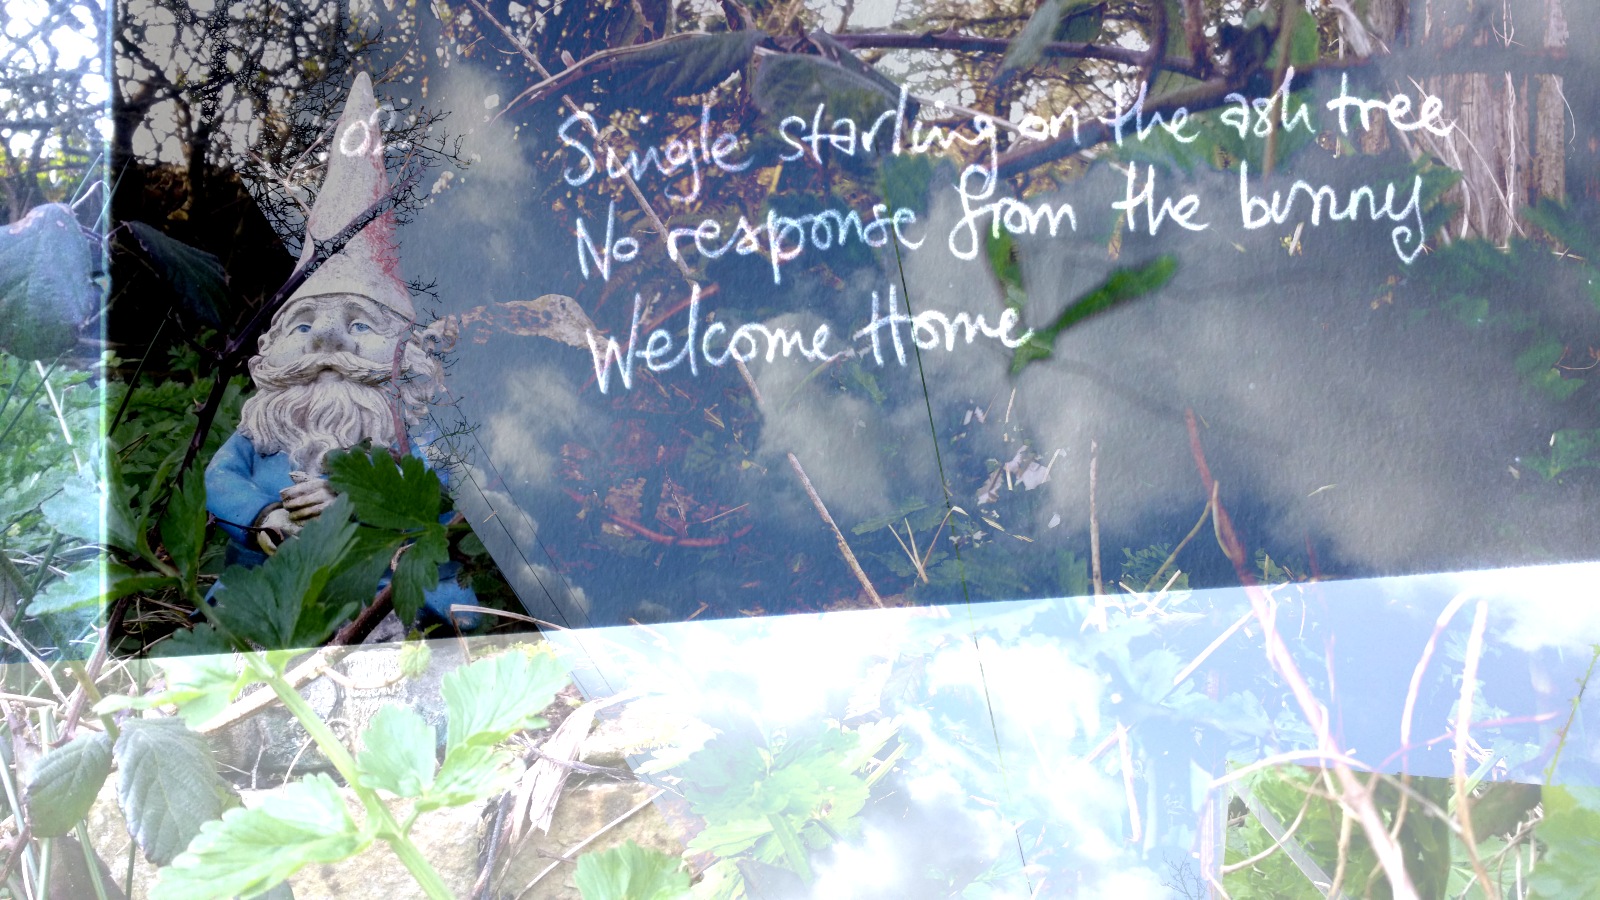 02
Single starling on the ash tree
No response from the bunny
Welcome Home